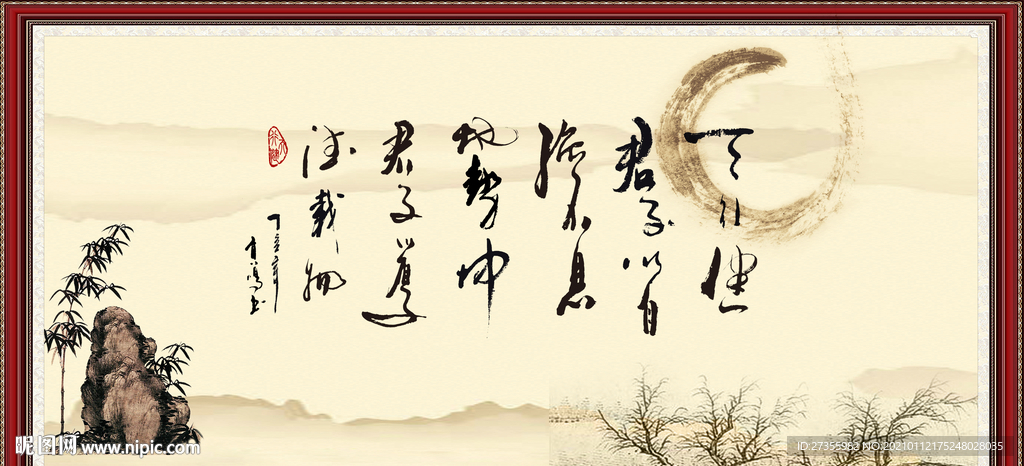 天行健
君子以自
强不息
地势坤
君子厚
德载物
丁亥年
昵图网 www.nipic.com
ID:27356983 NO:20210112175248028035